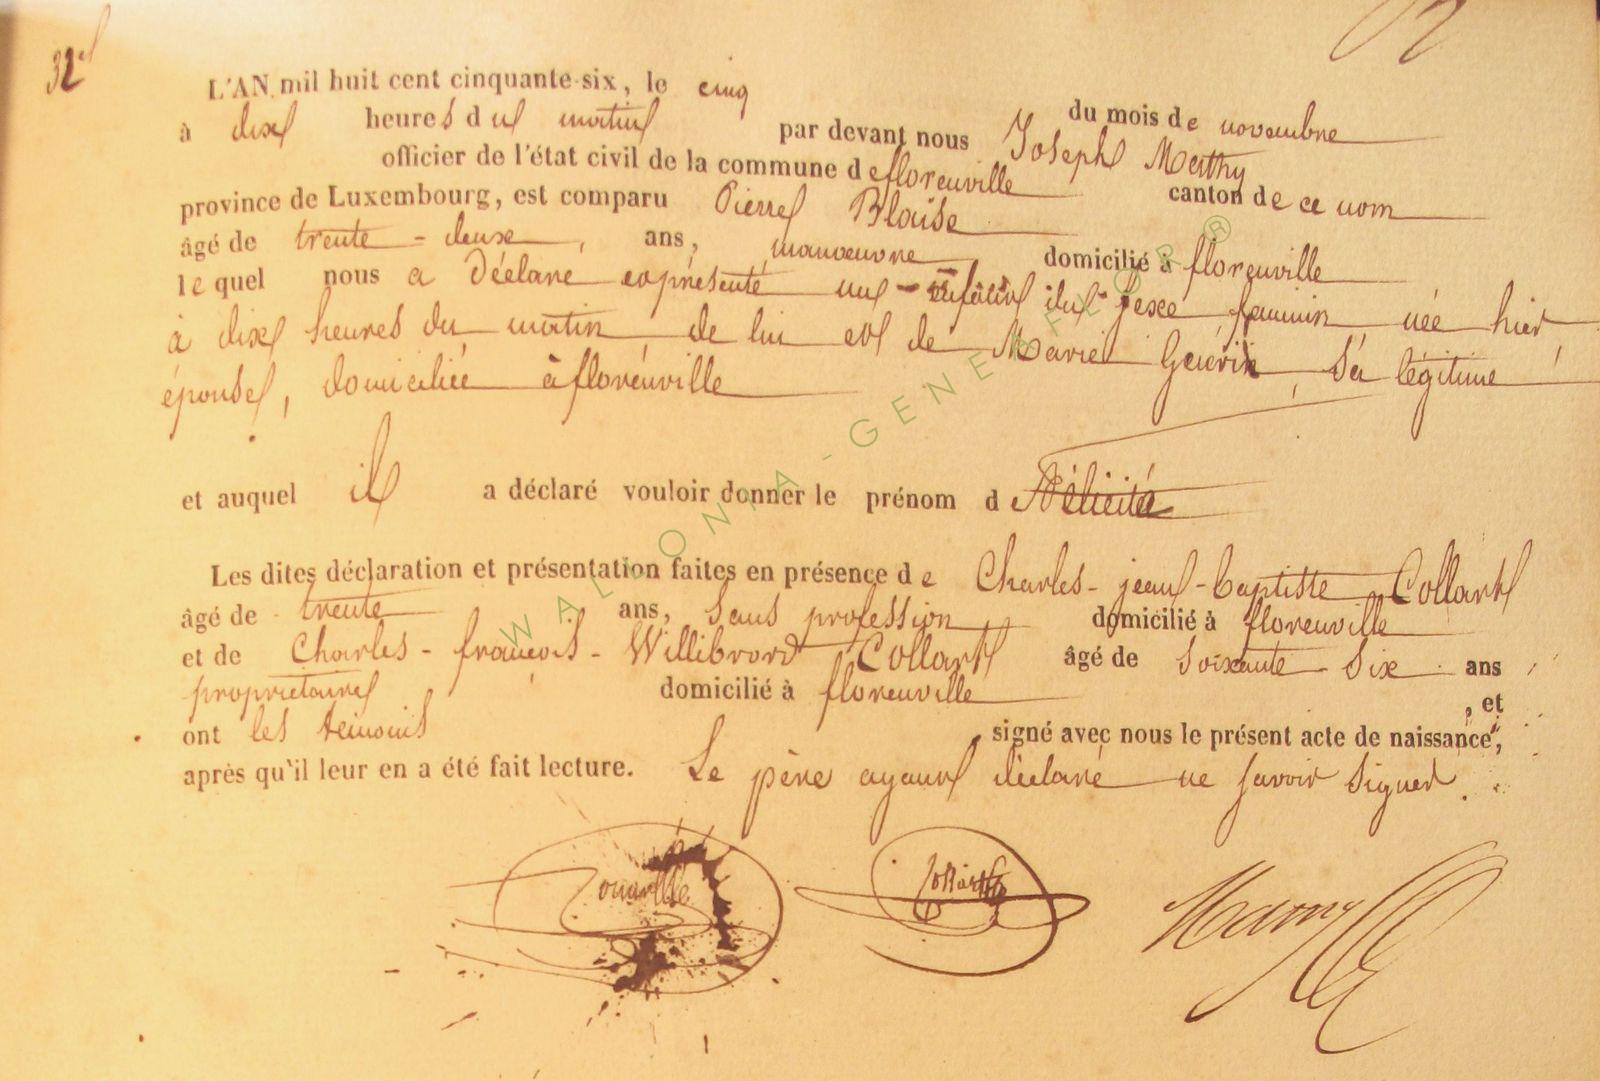 32e
L'AN mil huit cent cinquante-six, le cinq du mois de novembre
à dix heures du matin par devant nous Joseph Mathy
officier de l'état civil de la commune de florenville canton de ce nom
province de Luxembourg, est comparu Pierre Blaise
âgé de trente-deux, ans, manoeuvre, domicilié à florenville
lequel nous a déclaré et présenté un enfant du sexe feminin née hier
à dix heures du matin de lui et de Marie Guérin, sa légitime
épouse, domiciliée à florenville
et auquel il a déclaré vouloir donner le prénom d Félicité
Les dites déclaration et présentation faites en présence de Charles-jean-baptiste Collart
âgé de trente ans, sans profession domicilié à florenville
et de Charles-françois-Willibrord Collart âgé de soixante six ans
propriétaire domicilié à florenville, et
ont les témoins signé avec nous le présent acte de naissance,
après qu'il leur en a été fait lecture. Le père ayant déclaré ne savoir signer.
Collart
WALLONIA-GENEAFLOR ®